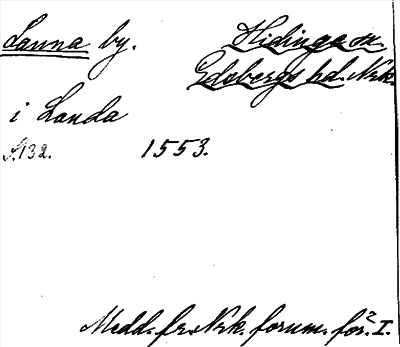 Lanna by.
Hidinge sn.
Edsbergs hd. Nrk.
i Landa
S. 132. 1553.
Medd. fr. Nrk. fornm. för. I.